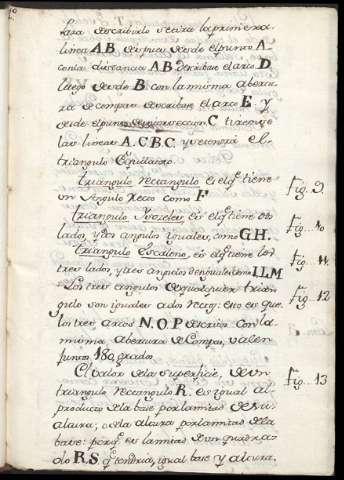 Para describirlo se tira la primera
linea A B. despues desde el punto A
con la distancia A B describase el arco D
luego desde B con la misma abertu
ra de compas describase el arco E y
desde el punto de su interseccion C tirense
las lineas A.C B.C. y se tendrá el
triangulo Equilatero.
triangulo rectangulo es el q.e tiene
un Angulo Recto como F Fig. 9.
triangulo Isosceles es el q.e tiene dos
lados, y dos angulos iguales, como G H. Fig. 10
triangulo Escaleno, es el q.e tiene los
tres lados, y tres angulos desiguales como I L M Fig. 11.
Los tres angulos de qualquier trian
gulo son iguales a dos rectos: esto es que Fig. 12
los tres arcos N. O. P descritos con la
misma abertura de Compas, valen
juntos 180 grados.
El valor de la superficie, de un
triangulo rectangulo R. es igual al Fig. 13
producto de la base por la mitad de su
altura; o de la altura por la mitad de la
base: porq.e es la mitad de un quadra
do R S. q.e tendria igual base y altura.